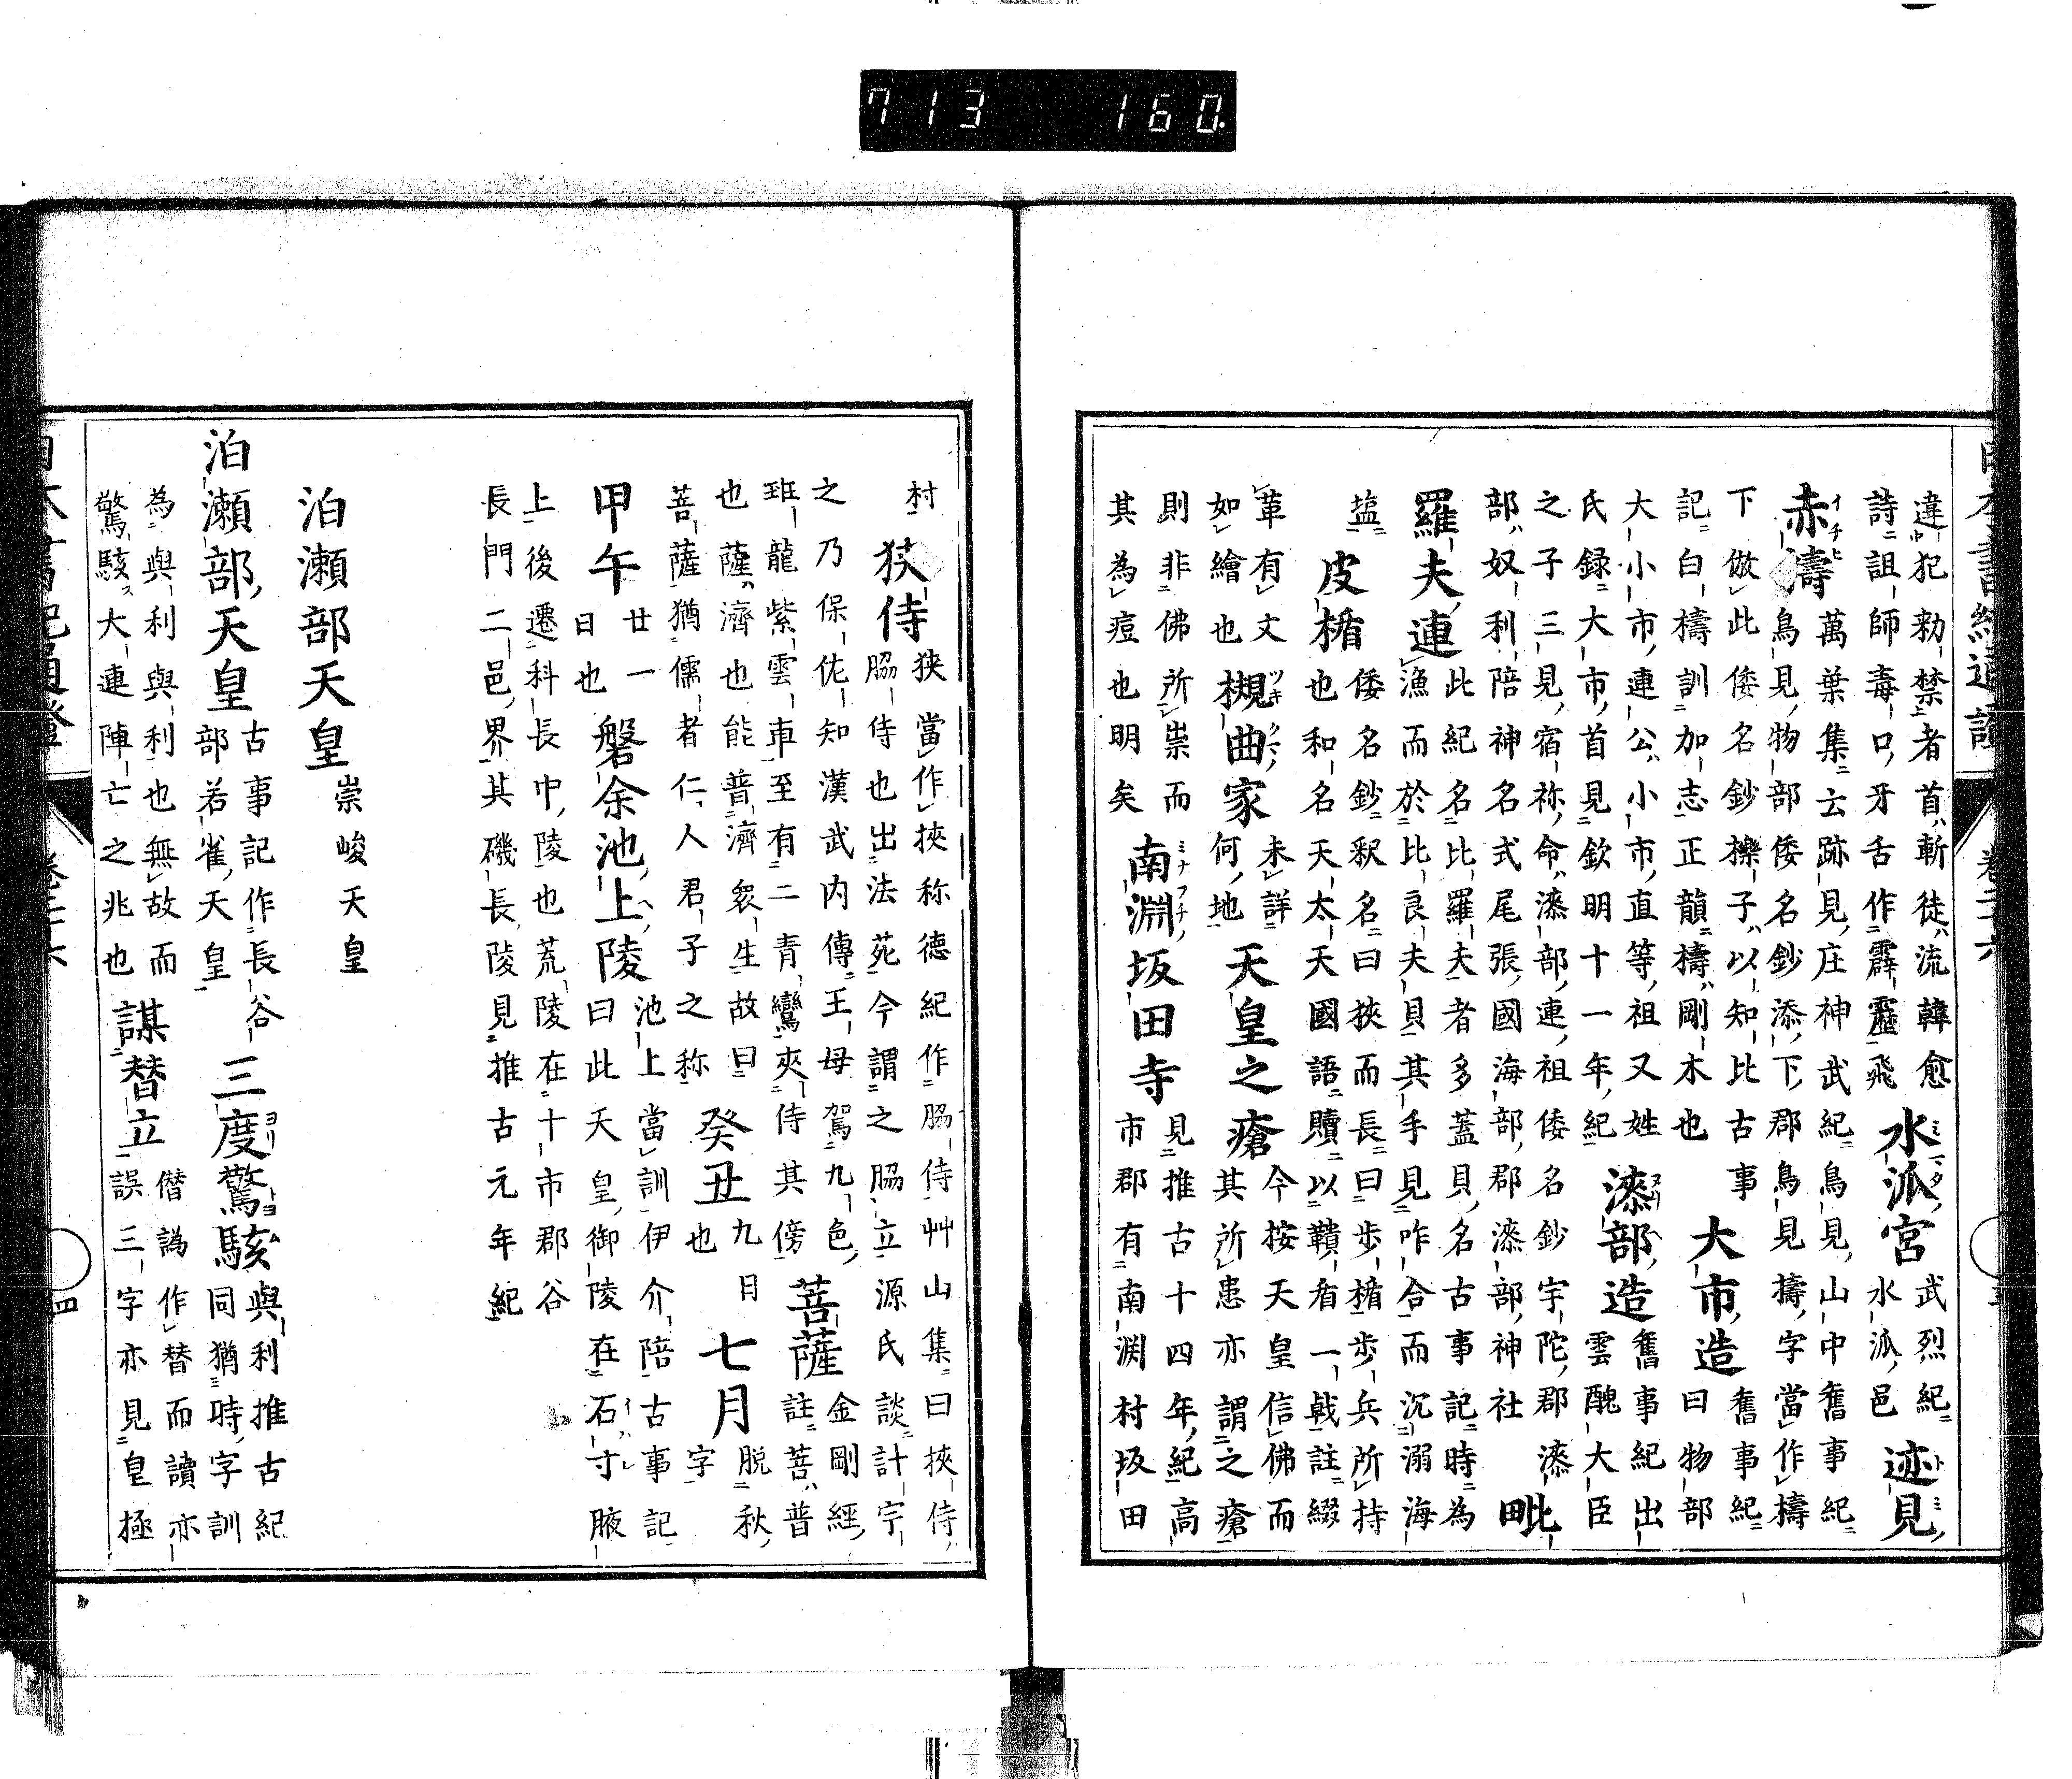 違犯勅禁者首斬徒流韓愈
詩詛師毒口牙舌作霹靂飛
水派宮
武烈紀
水派邑
迹見
赤檮
萬葉集云跡見庄神武紀鳥見山中舊事紀
鳥見物部倭名鈔添下郡鳥見檮字當作檮
下倣此倭名鈔擽子以知比古事
記白檮訓加志正韻檮剛木也
大市造
舊事紀
曰物部
大小市連公小市直等祖又姓
氏録大市首見欽明十一年紀
漆部造
舊事紀出
雲醜大臣
之子三見宿祢命漆部連祖倭名鈔宇陀郡漆
部奴利陪神名式尾張國海部郡漆部神社
毗
羅夫連
此紀名比羅夫者多蓋貝名古事記時為
漁而於比良夫貝其手見咋合而沉溺海
塩
皮楯
倭名鈔釈名曰狹而長曰步楯步兵所持
也和名天太天國語贖以鞼盾一戟註綴
革有文
如繪也
槻曲家
未詳
何地
天皇之瘡
今按天皇信佛而
其所患亦謂之瘡
則非佛所崇而
其為痘也明矣
南淵坂田寺
見推古十四年紀高
市郡有南渕村坂田
村
狹侍
狹當作挾称德紀作脇侍艸山集曰挾侍
脇侍也出法苑今謂之脇立源氏談計宁
之乃保佐知漢武内傳王母駕九色
班龍紫雲車至有二青鸞夾侍其傍
菩薩
金剛經
註菩普
也薩濟也能普濟衆生故曰
菩薩猶儒者仁人君子之称
癸丑
九月
也
七月
脱秋
字
甲午
廿一
日也
磐余池上陵
池上當訓伊介陪古事記
曰此天皇御陵在石寸腋
上後遷科長中陵也荒陵在十市郡谷
長門二邑界其磯長陵見推古元年紀
泊瀬部天皇
崇峻天皇
泊瀬部天皇
古事記作長谷
部若雀天皇
三度驚駭
與利推古紀
同猶時字訓
為與利與利也無故而
驚駭大連陣亡之兆也
謀替立
僣譌作替而讀亦
誤三字亦見皇極
713 160